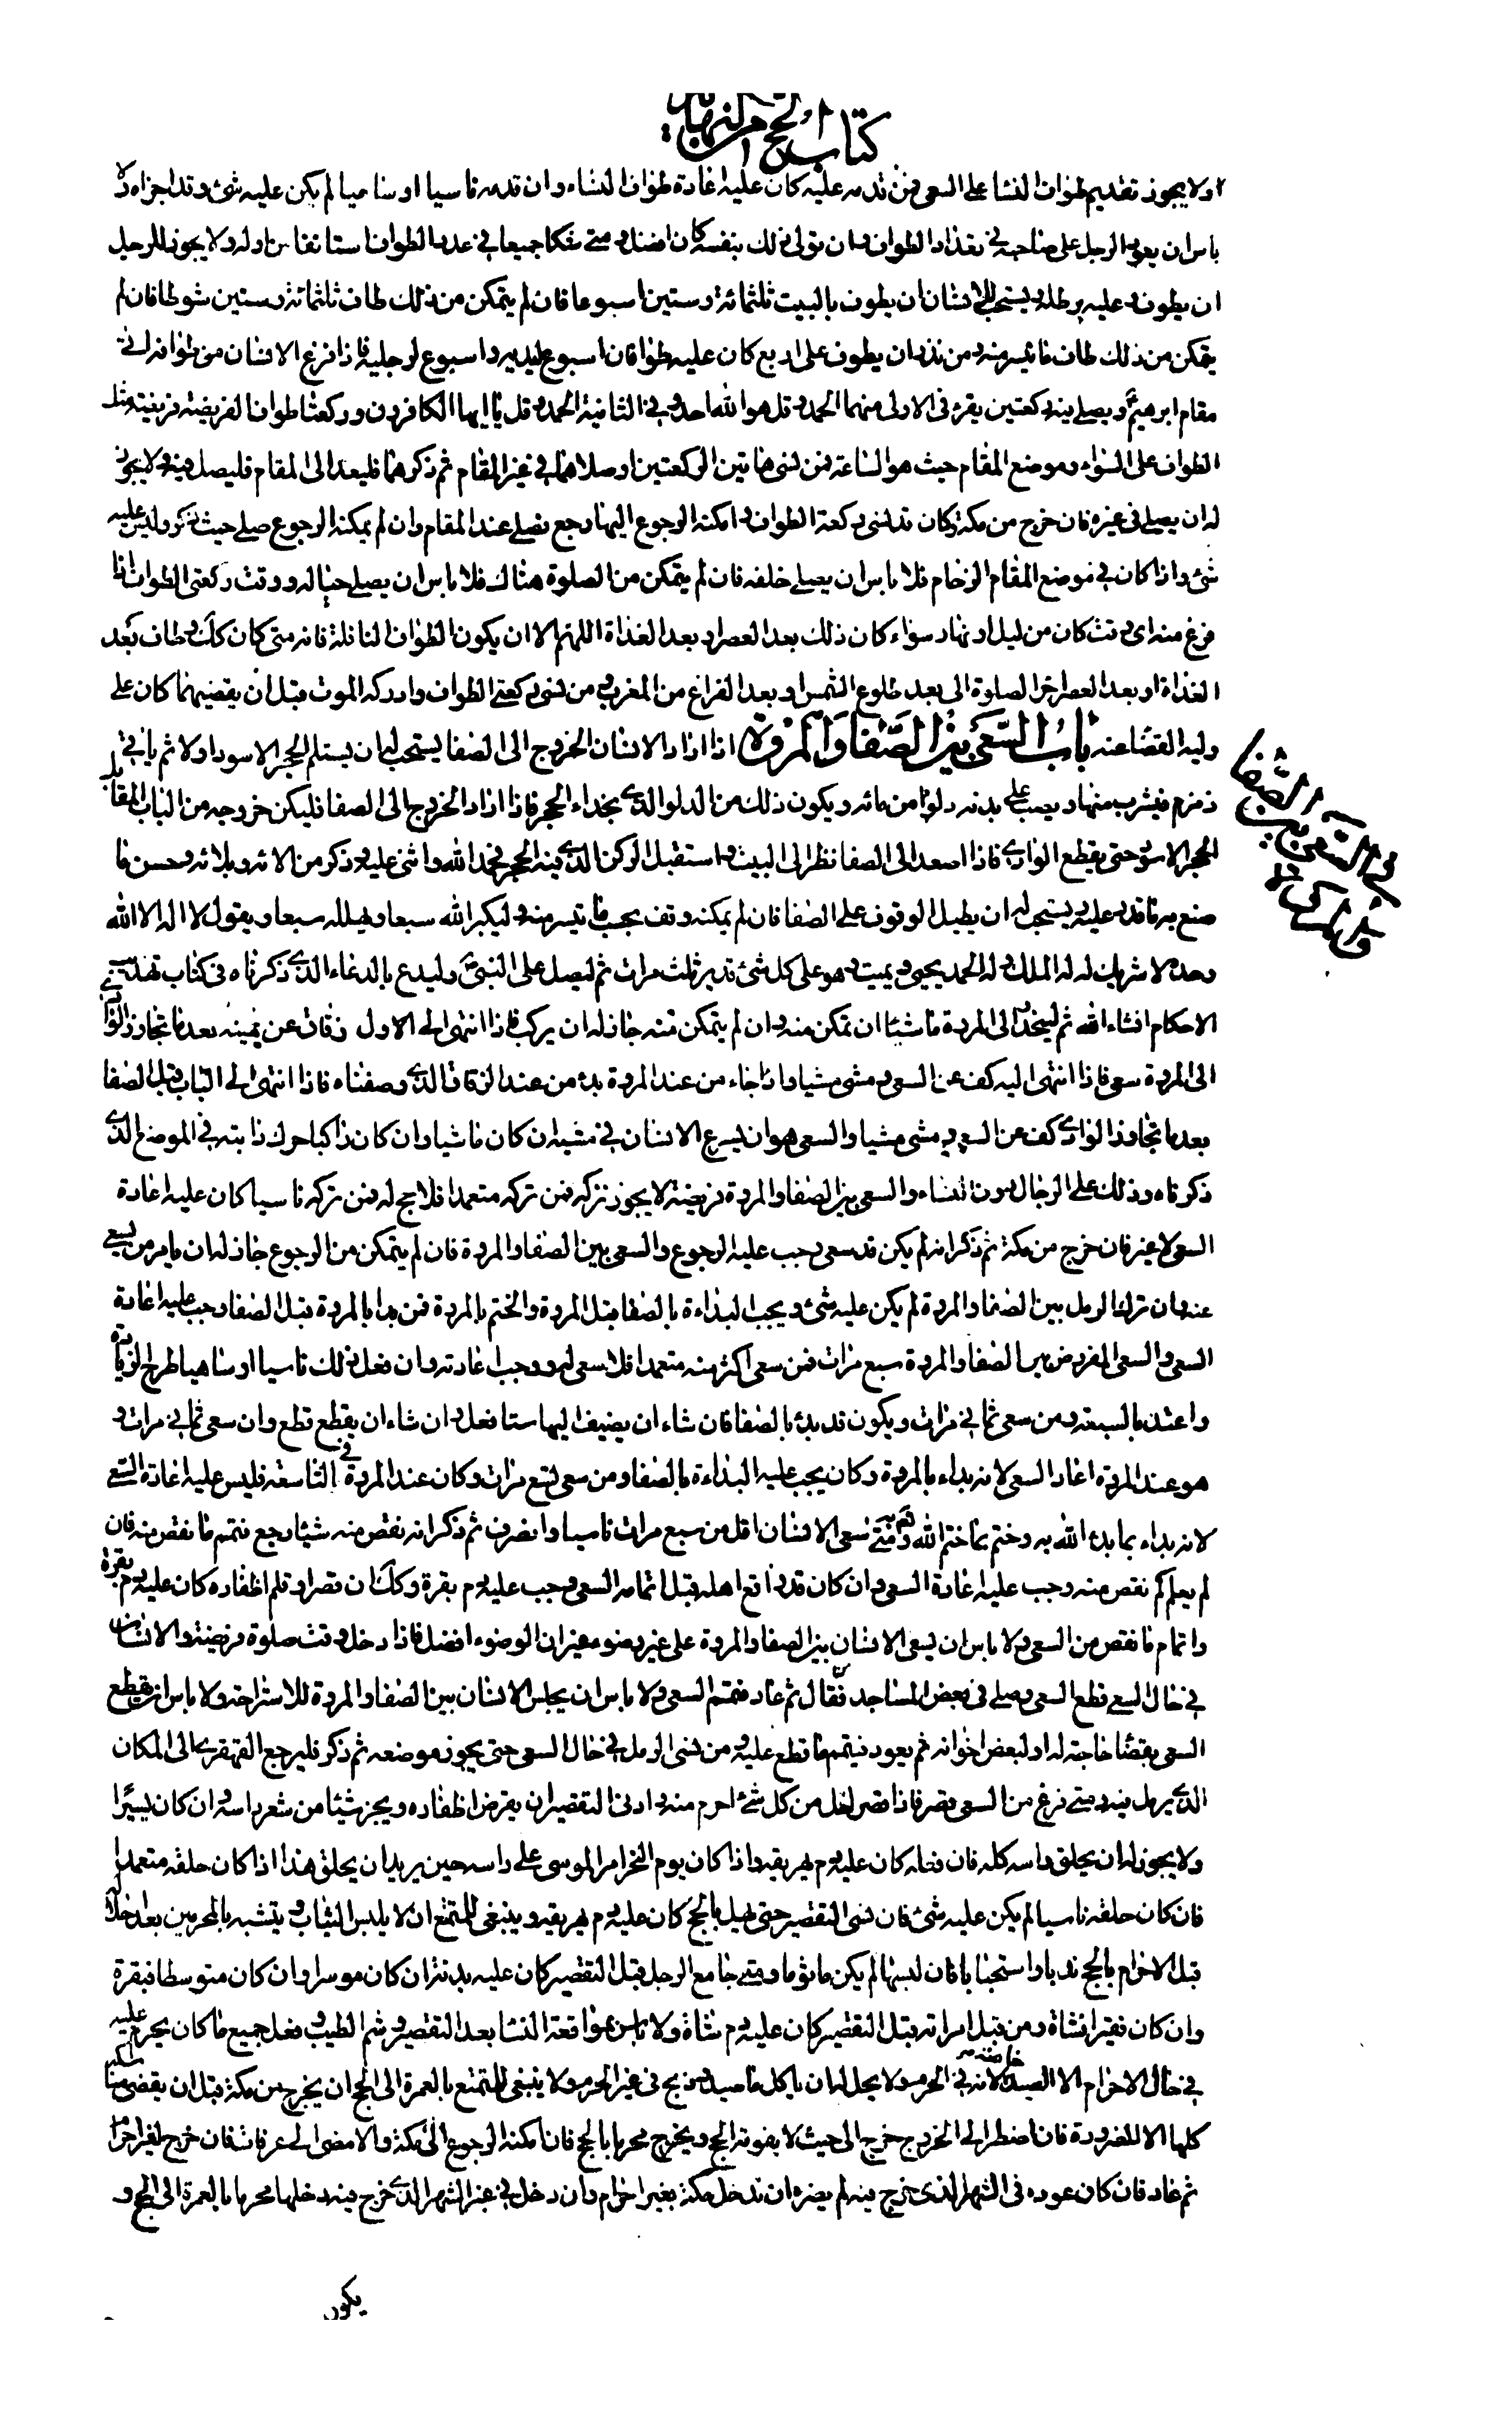 كتاب الحج من النهاية
ولا يجوز تقديم طواف النساء على السعى فمن قدمه عليه كان عليه اعادة طواف النساء وان قدمه ناسيا او ساهيا لم يكن عليه شئ وقد اجزاه ولا
باس ان يعول الرجل على صاحبه فى تعداد الطواف وان تولى ذلك بنفسه كان افضل ومتى شكا جميعا فى عدد الطواف استانفا من اوله ولا يجوز للرجل
ان يطوف وعليه برطله ويستحب للانسان ان يطوف بالبيت ثلثمائة وستين اسبوعا فان لم يتمكن من ذلك طاف ثلثمائة وستين شوطا فان لم
يتمكن من ذلك طاف ما تيسر منه ومن نذر ان يطوف على اربع كان عليه طوافان اسبوع ليديه واسبوع لرجليه فاذا فرغ الانسان من طوافه اتى
مقام ابرهيم ويصلى فيه ركعتين يقرء فى الاولى منهما الحمد وقل هو الله احد وفى الثانية الحمد وقل يا ايها الكافرون وركعتا طواف الفريضة فريضة مثل
الطواف على السواء وموضع المقام حيث هو الساعة فمن نسى هاتين الركعتين او صلاهما فى غير المقام ثم ذكرهما فليعد الى المقام فليصل فيه ولا يجوز
له ان يصلى فى غيره فان خرج من مكة وكان قد نسى ركعتى الطواف وامكنه الرجوع اليها رجع فصلى عند المقام وان لم يمكنه الرجوع صلى حيث ذكر وليس عليه
شئ واذا كان فى موضع المقام الزحام فلا باس ان يصلى خلفه فان لم يتمكن من الصلوة هناك فلا باس ان يصلى حياله ووقت ركعتى الطواف اذا
فرغ منه اى وقت كان من ليل او نهار سواء كان ذلك بعد العصر او بعد الغداة اللهم الا ان يكون الطواف النافلة فانه متى كان كذلك وطاف بعد
الغداة او بعد العصر اخر الصلوة الى بعد طلوع الشمس او بعد الفراغ من المغرب ومن نسى ركعتى الطواف وادركه الموت قبل ان يقضيهما كان على
وليه القضاء عنه باب السعى بين الصفا والمروة اذا اراد الانسان الخروج الى الصفا يستحب له ان يستلم الحجر الاسود اولا ثم ياتى
زمزم فيشرب منها ويصب على بدنه دلوا من مائه ويكون ذلك من الدلو الذى بحذاء الحجر فاذا اراد الخروج الى الصفا فليكن خروجه من الباب المقابل
الحجر الاسود حتى يقطع الوادى فاذا صعد الى الصفا نظر الى البيت واستقبل الركن الذى فيه الحجر فحمد الله واثنى عليه وذكر من الائه وبلائه وحسن ما
صنع به ما قدر عليه ويستحب له ان يطيل الوقوف على الصفا فان لم يمكنه وقف بحسب ما تيسر منه وليكبر الله سبعا ويهلله سبعا ويقول لا اله الا الله
وحده لا شريك له له الملك وله الحمد يحيى ويميت وهو على كل شئ قدير ثلث مرات ثم ليصل على النبى وليدع بالدعاء الذى ذكرناه فى كتاب تهذيب
الاحكام انشاء الله ثم لينحدر الى المروة ماشيا ان تمكن منه وان لم يتمكن منه جاز له ان يركب فاذا انتهى الى الاول زقاق عن يمينه بعد ما تجاوز الوادى
الى المروة سعى فاذا انتهى اليه كف عن السعى ومشى مشيا واذا جاء من عند المروة بدء من عند الزقاق الذى وصفناه فاذا انتهى الى الباب قبل الصفا
بعد ما تجاوز الوادى كف عن السعى ومشى مشيا والسعى هو ان يسرع الانسان فى مشيه ان كان ماشيا وان كان راكبا حرك دابته فى الموضع الذى
ذكرناه وذلك على الرجال دون النساء والسعى بين الصفا والمروة فريضة لا يجوز تركه فمن تركه متعمدا فلا حج له ومن تركه ناسيا كان عليه اعادة
السعى لا غير فان خرج من مكة ثم ذكر انه لم يكن قد سعى وجب عليه الرجوع والسعى بين الصفا والمروة فان لم يتمكن من الرجوع جاز له ان يامر من يسعى
عنه وان ترك الرمل بين الصفا والمروة لم يكن عليه شئ ويجب البداءة بالصفا قبل المروة والختم بالمروة فمن بدا بالمروة قبل الصفا وجب عليه اعادة
السعى والسعى المفروض بين الصفا والمروة سبع مرات فمن سعى اكثر منه متعمدا فلا سعى له ووجب اعادته وان فعل ذلك ناسيا او ساهيا طرح الزيادة
واعتد بالسبعة ومن سعى ثمانى مرات ويكون قد بدء بالصفا فان شاء ان يضيف اليها ستا فعل وان شاء ان يقطع قطع وان سعى ثمانى مرات و
هو عند المروة اعاد السعى لانه بداء بالمروة وكان يجب عليه البداءة بالصفا ومن سعى تسع مرات وكان عند المروة فى التاسعة فليس عليه اعادة السعى
لانه بداء بما بدء الله به وختم بما ختم الله به ومتى سعى الانسان اقل من سبع مرات ناسيا وانصرف ثم ذكر انه نقص منه شيئا رجع فتمم ما نقص منه فان
لم يعلم كم نقص منه وجب عليه اعادة السعى وان كان قد واقع اهله قبل اتمامه السعى وجب عليه دم بقرة وكذلك ان قصر او قلم اظفاره كان عليه دم بقرة
واتمام ما نقص من السعى ولا باس ان يسعى الانسان بين الصفا والمروة على غير وضوء غير ان الوضوء افضل فاذا دخل وقت صلوة فريضة والانسان
فى حال السعى قطع السعى وصلى فى بعض المساجد ثم عاد فتمم السعى ولا باس ان يجلس الانسان بين الصفا والمروة للاستراحة ولا باس ان يقطع
السعى بقضاء حاجة له او لبعض اخوانه ثم يعود فيتمم ما قطع عليه ومن نسى الرمل فى حال السعى حتى يجوز موضعه ثم ذكر فليرجع القهقرى الى المكان
الذى يرمل فيه ومتى فرغ من السعى قصر فاذا قصر احل من كل شئ احرم منه وادنى التقصير ان يقرض اظفاره ويجز شيئا من شعر راسه وان كان يسيرا
ولا يجوز له ان يحلق راسه كله فان فعله كان عليه دم يهريقه واذا كان يوم النحر امر الموسى على راسه حين يريد ان يحلق هذا اذا كان حلقه متعمدا
فان كان حلقه ناسيا لم يكن عليه شئ فان نسى التقصير حتى يهل بالحج كان عليه دم يهريقه وينبغى للمتمتع ان لا يلبس الثياب ويتشبه بالمحرمين بعد احلاله
قبل الاحرام بالحج ندبا واستحبابا فان لبسها لم يكن ماثوما ومتى جامع الرجل قبل التقصير كان عليه بدنة ان كان موسرا وان كان متوسطا فبقرة
وان كان فقيرا فشاة ومن قبل امراته قبل التقصير كان عليه دم شاة ولا باس بمواقعة النساء بعد التقصير وشم الطيب وفعل جميع ما كان يحرم عليه
فى حال الاحرام الا الصيد خاصة لانه فى الحرم ولا يحل له ان ياكل ما صيد وذبح فى غير الحرم ولا ينبغى للمتمتع بالعمرة الى الحج ان يخرج من مكة قبل ان يقضى مناسكه
كلها الا للضرورة فان اضطر الى الخروج خرج الى حيث لا يفوته الحج ويخرج محرما بالحج فان امكنه الرجوع الى مكة والا مضى الى عرفات فان خرج بغير احرام
ثم عاد فان كان عوده فى الشهر الذى خرج فيه لم يضره ان يدخل مكة بغير احرام وان دخل فى غير الشهر الذى خرج فيه دخلها محرما بالعمرة الى الحج و
يكون